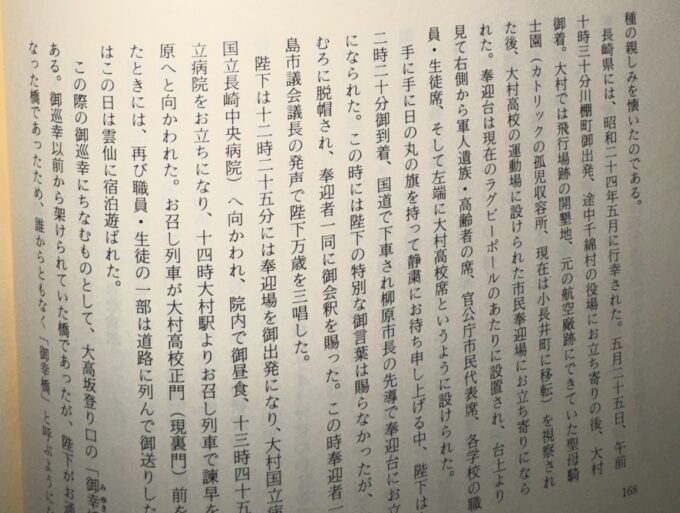 種の親しみを懐いたのである。
長崎県には、昭和二十四年五月に行幸された。五月二十五日、午前
十時三十分川棚町御出発、途中千綿村の役場にお立ち寄りの後、大村
御着。大村では飛行場跡の開墾地、元の航空廠跡にできていた聖母騎
士園（カトリックの孤児収容所、現在は小長井町に移転）を視察され
た後、大村高校の運動場に設けられた市民奉迎場にお立ち寄りになら
れた。奉迎台は現在のラグビーポールのあたりに設置され、台上より
見て右側から軍人遺族・高齢者の席、官公庁市民代表席、各学校の職
員・生徒席、そして左端に大村高校席というように設けられた。
手に手に日の丸の旗を持って静粛にお待ち申し上げる中、陛下は
二時二十分御到着、国道で下車され柳原市長の先導で奉迎台にお立
になられた。この時には陛下の特別な御言葉は賜らなかったが、
むろに脱帽され、奉迎者一同に御会釈を賜った。この時奉迎者一
島市議会議長の発声で陛下万歳を三唱した。
陛下は十二時二十五分には奉迎場を御出発になり、大村国立病
国立長崎中央病院）へ向かわれ、院内で御昼食、十三時四十五
立病院をお立ちになり、十四時大村駅よりお召し列車で諫早を
原へと向かわれた。お召し列車が大村高校正門（現裏門）前を
たときには、再び職員・生徒の一部は道路に列んで御送りした
はこの日は雲仙に宿泊遊ばれた。
この際の御巡幸にちなむものとして、大高坂登り口の「御幸
みゆき
ある。御巡幸以前から架けられていた橋であったが、陛下がお通
なった橋であったため、誰からともなく「御幸橋」と呼ぶように
168